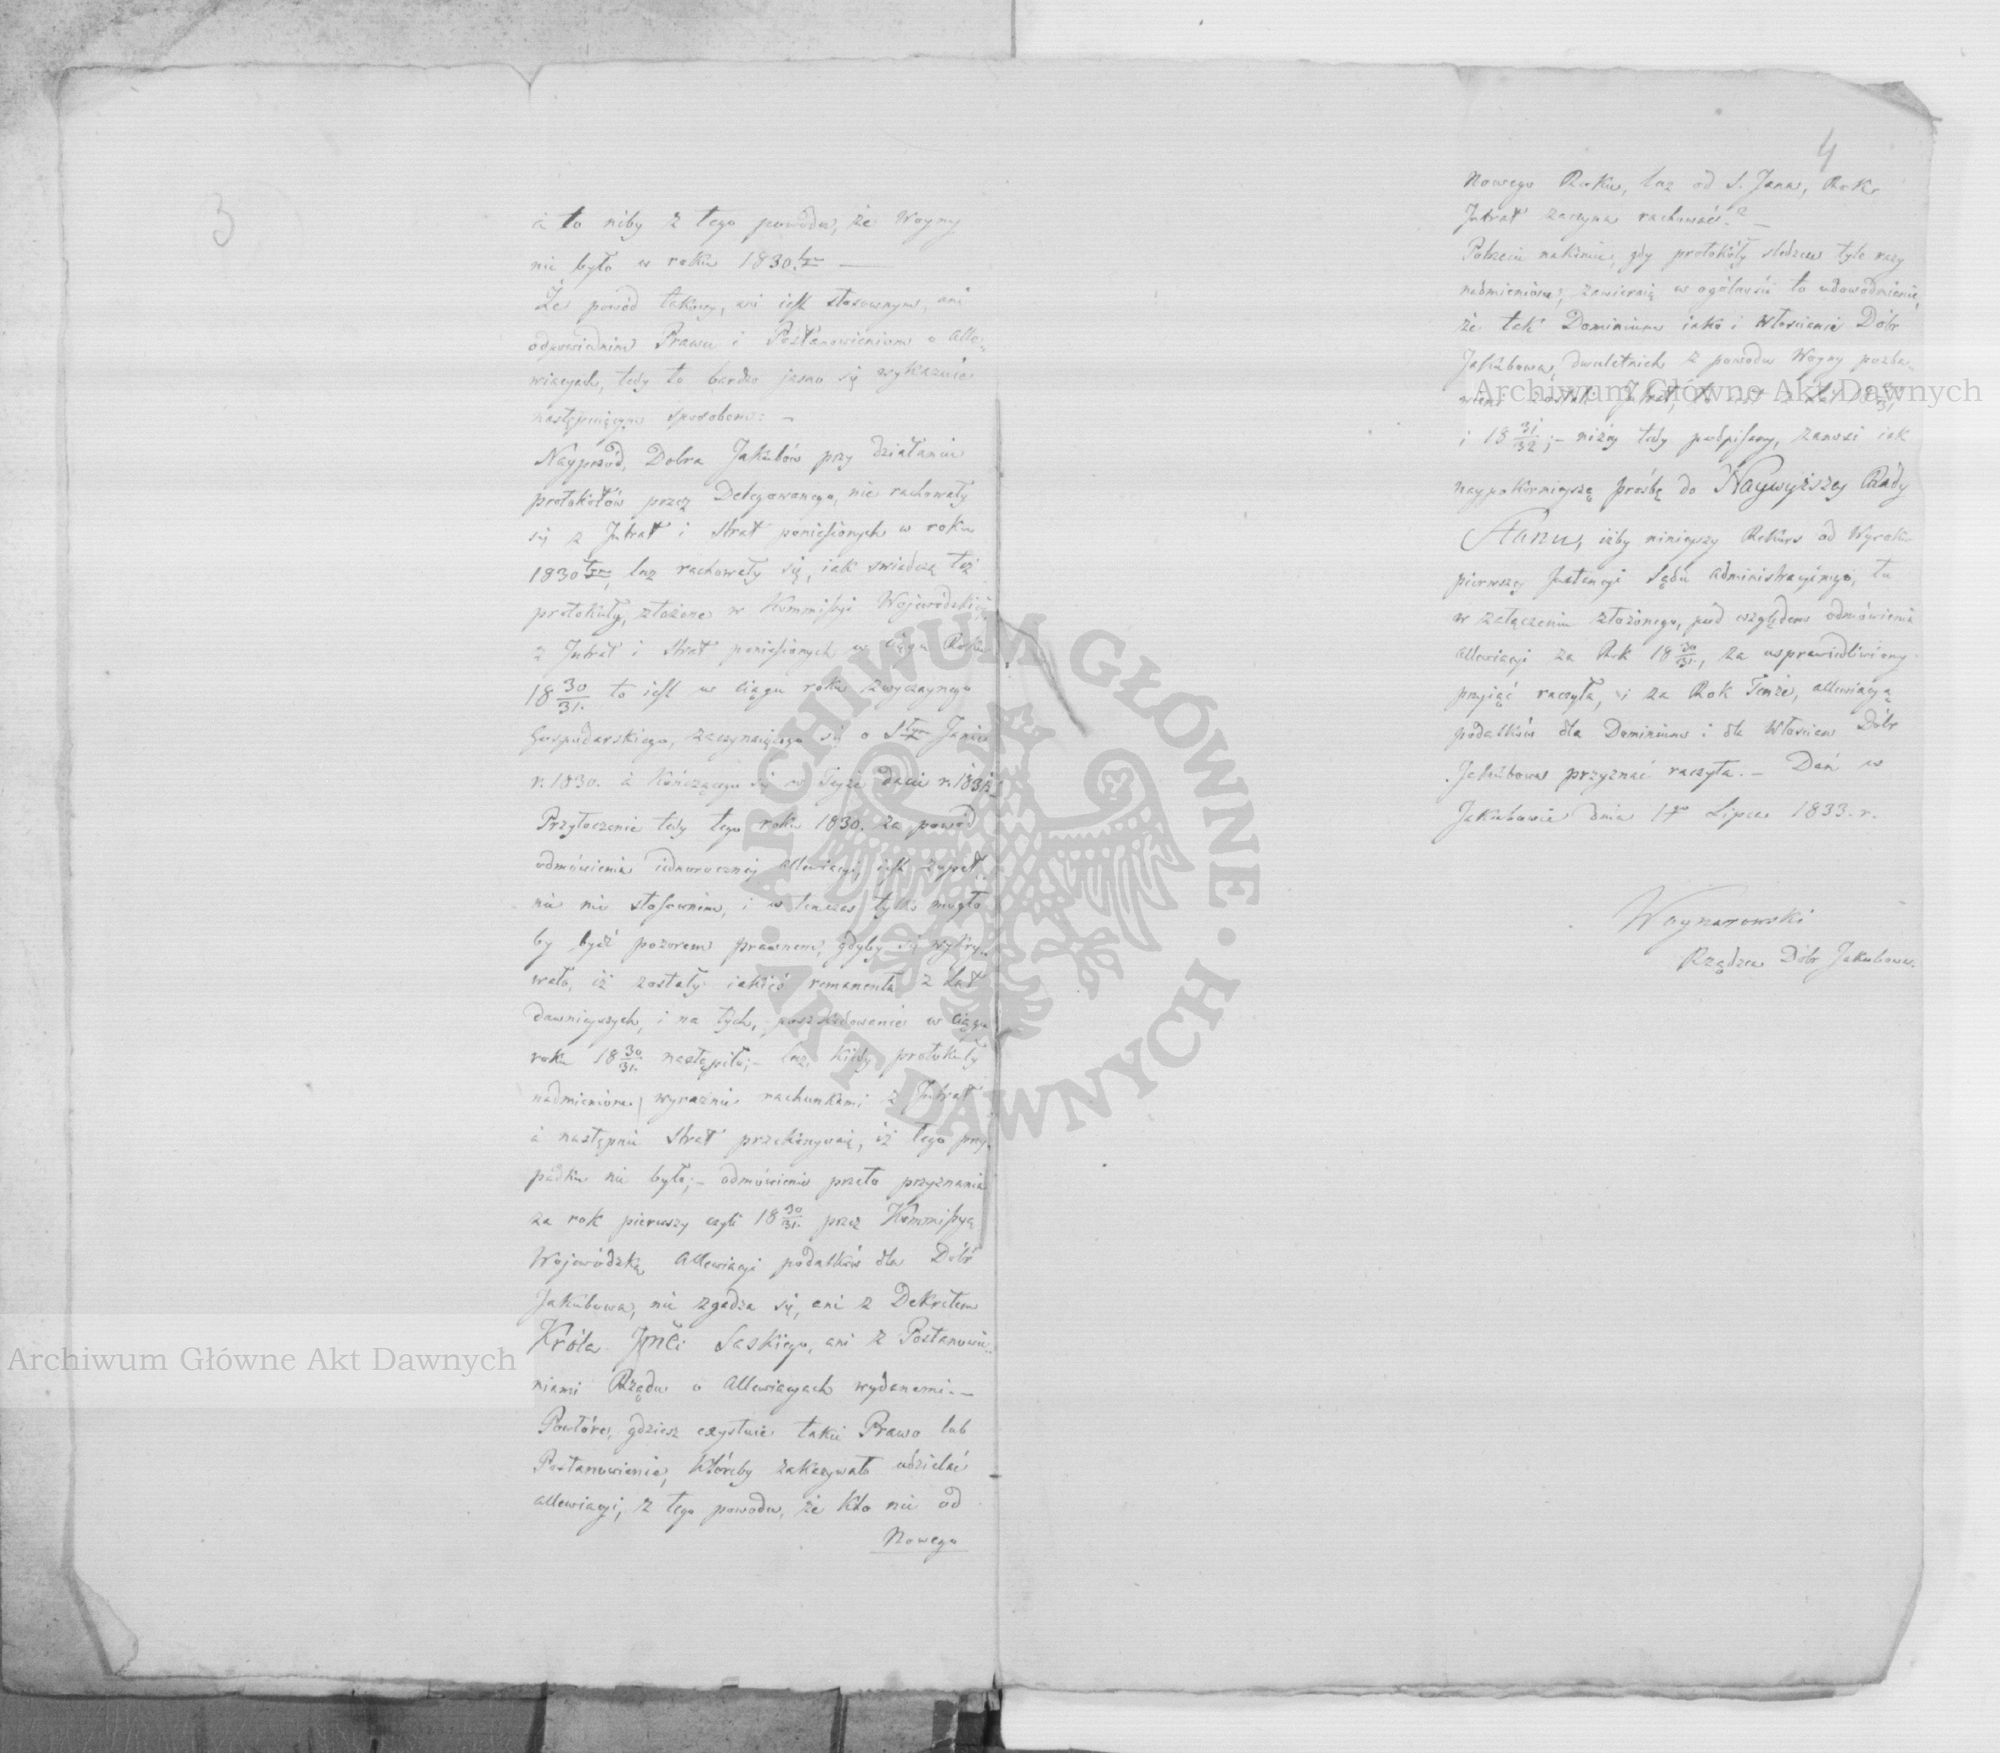 3
à to niby z tego powodu, że Woyny
nie było w roku 1830.tym —
Że powód takowy, ani iest stosownym, ani
odpowiednim Prawu i Postanowieniom o Alle-
wiacyach, tedy to bardzo jasno się wykazuie
następuiącym sposobem: —
Nayprzód, Dobra Jakubów przy działaniu
protokółów przez Delegowanego, nie rachowały
się z Intrat i strat poniesionych w roku
1830tym, lecz rachowały się, iak swiadczą też
protokuły, złożone w Kommissyi Wojewódzkiey
z Intrat i strat poniesionych w ciągu Roku
18 30/31. to iest w ciągu roku zwyczaynego
Gospodarskiego, zaczynaiącego się o Stym Janie
r. 1830. à kończącego się w teyże dacie r. 1831.
Przytoczenie tedy tego roku 1830. za powód
odmówienia iednoroczney allewiacyi, iest zupeł-
nie nie stosownem, i w tenczas tylko mogło
by bydź pozorem prawnem, gdyby się wykry-
wało, iż zostały iakieś remanenta z Lat
dawnieyszych, i na tych, poszkodowanie w ciągu
roku 18 30/31. nastąpiło; — lecz kiedy protokuły
nadmienione, wyraźnie rachunkami z Intrat
à następnie strat przekonywaią, iż tego przy-
padku nie było; — odmówienie przeto przyznania
za rok pierwszy czyli 18 30/31. przez Kommissyą
Wojewódzką Allewiacyi podatków dla Dóbr
Jakubowa, nie zgadza się, ani z Dekretem
Króla Jmci Saskiego, ani z Postanowie-
niami Rządu o Allewiacyach wydanemi. —
Powtóre, gdziesz exystuie takie Prawo lub
Postanowienie, któreby zakazywało udzielać
allewiacyi, z tego powodu, że kto nie od
Nowego
4
Nowego Roku, lecz od S. Jana, Rok
Intrat zaczyna rachować? —
Potrzecie nakoniec, gdy protokóły śledzcze tyle razy
nadmienione, zawieraią w ogólności to udowodnienie,
że tak Dominium iako i Włościanie Dóbr
Jakubowa, dwuletnich z powodu Woyny pozba-
wieni zostali Intrat, to iest z Lat 18 30/31
i 18 31/32; — niżey tedy podpisany, zanosi iak
naypokornieyszą prośbę do Naywyższey Rady
Stanu, iżby ninieyszy Rekurs od Wyroku
pierwszey Instancyi Sądu administracyinego, tu
w załączeniu złożonego, pod względem odmówienia
allewiacyi za Rok 18 30/31., za usprawiedliwiony
przyiąć raczyła, i za Rok Tenże, allewiacyą
podatków dla Dominium i dla Włościan Dóbr
Jakubowa przyznać raczyła. — Dań w
Jakubowie dnia 1go Lipca 1833. r.
Woynarowski
Rządzca Dóbr Jakubowa.
Archiwum Główne Akt Dawnych
Archiwum Główne Akt Dawnych
ARCHIWUM GŁÓWNE
AKT DAWNYCH